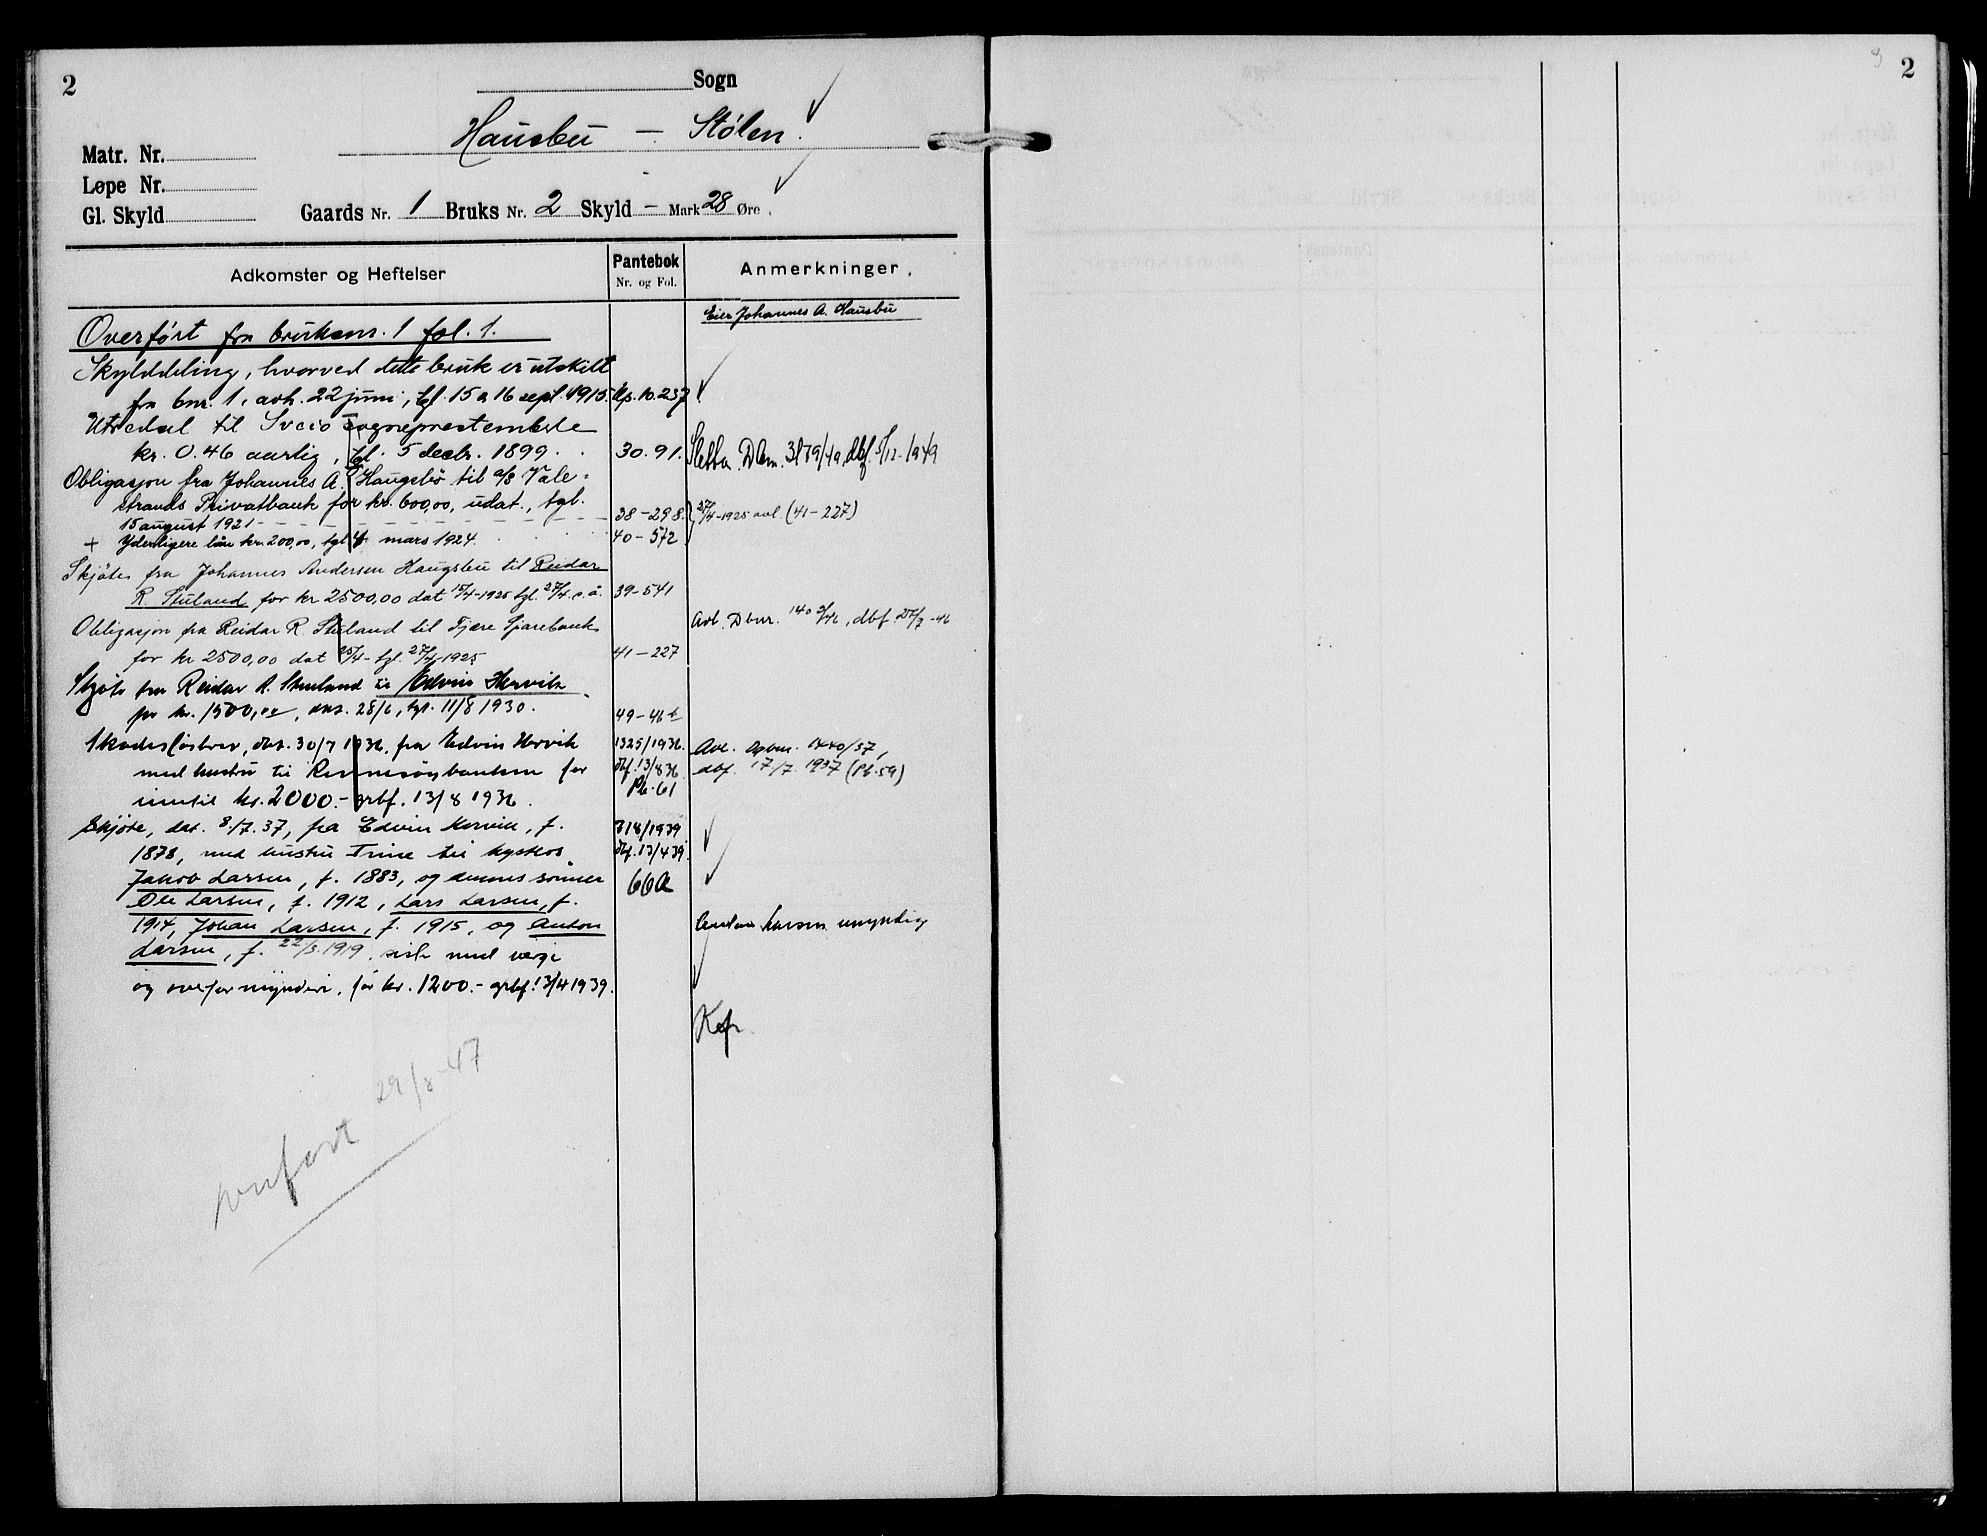 2
Sogn
Hausbu – Stølen.
Matr. Nr.
Løpe Nr.
Gl. Skyld
Gaards Nr. 1 Bruks Nr. 2 Skyld – Mark 28 Øre.
Adkomster og Heftelser
Pantebok
Nr. og Fol.
Anmerkninger.
Eier Johannes A. Hausbu
Overført fra bruksnr. 1 fol. 1.
Skylddeling, hvorved dette bruk er utskilt
fra bnr. 1, avh. 22 juni, tgl. 15 a 16 sept. 1915. 10.237
til Sveio sogneprestembede
kr. 0.46 aarlig, tgl. 5 decbr. 1899. 30. 91. 5/12-1949
Obligasjon fra Johannes A. Haugsbø til a/s Vale-
strands Privatbank for kr. 600,00, udat., tgl.
15 august 1921 38-298. 27/4-1925 avl. (41-227)
+ Yderligere lån kr. 200,00, tgl. 4 mars 1924. 40-572
Skjøte fra Johannes Andersen Haugsbu til Reidar
R. Stuland for kr 2500,00 dat 15/4-1925 tgl. 27/4 s.å. 39-541
Obligasjon fra Reidar R. Stuland til Fjære Sparebank
for kr 2500,00 dat 25/4- tgl. 27/4-1925 41-227
Avl. Dbnr.
Skjøte fra Reidar R. Stuland til Edvin Hervik
for kr. 1500,00, dat. 28/6, tgl. 11/8 1930. 49-46
Skadesløsbrev, dat. 30/7 1936, fra Edvin Hervik 1325/1936. Avl. Dgbnr. 1440/37,
med hustru til Rennesøybanken for dbf. 13/8 36. dbf. 17/7. 1937 (Pb. 59)
inntil kr. 2000.- grbf. 13/8 1936. Pb. 61
Skjøte, dat. 8/7. 37, fra Edvin Hervik, f. 718/1939
1878, med hustru Trine til dbf. 13/4 39.
Jakob Larsen, f. 1883, og dennes sønner 66a
Ole Larsen, f. 1912, Lars Larsen, f.
1914, Johan Larsen, f. 1915, og Anton Anton Larsen umyndig
Larsen, f. 22/3. 1919, sist. med verge
og overformynderi, for kr. 1200.- grbf. 13/4 1939.
Kop.
overført 29/8-47
2